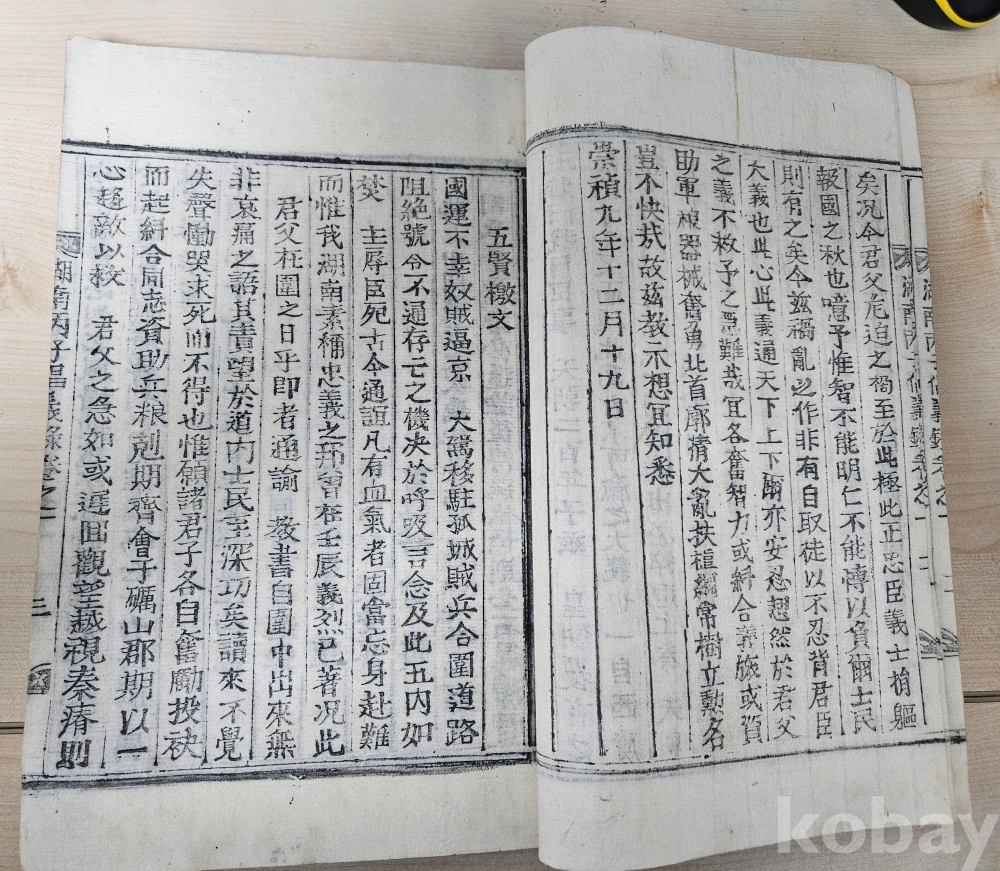 湖南丙子倡義錄卷之一 二
矣况今君父危迫之禍至於此極此正忠臣義士捐軀
報國之秋也噫予惟智不能明仁不能博以負爾士民
則有之矣今兹禍亂之作非有自取徒以不忍背君臣
大義也此心此義通天下上下爾亦安忍恝然於君父
之義不救予之患難哉冝各奮智力或糾合義旅或資
助軍粮器械奮勇北首廓清大亂扶植綱常樹立勳名
豈不快㢤故玆教示想冝知悉
崇禎九年十二月十九日
五賢檄文
國運不幸奴賊逼京 大駕移駐孤城賊兵合圍道路
阻絶號令不通存亡之機决於呼吸言念及此五内如
焚 主辱臣死古今通誼凡有血氣者固當忘身赴難
而惟我湖南素稱忠義之邦曾在壬辰義烈已著况此
君父在圍之日乎即者通諭 教書自圍中出來無
非哀痛之語其責望於道内士民至深切矣讀來不覺
失聲慟哭求死而不得也惟願諸君子各自奮勵投袂
而起糾合同志資助兵粮剋期齊會于礪山郡期以一
心趍敵以救 君父之急如或遲回觀望越視秦瘠則
湖南丙子倡義錄卷之一 三
kobay